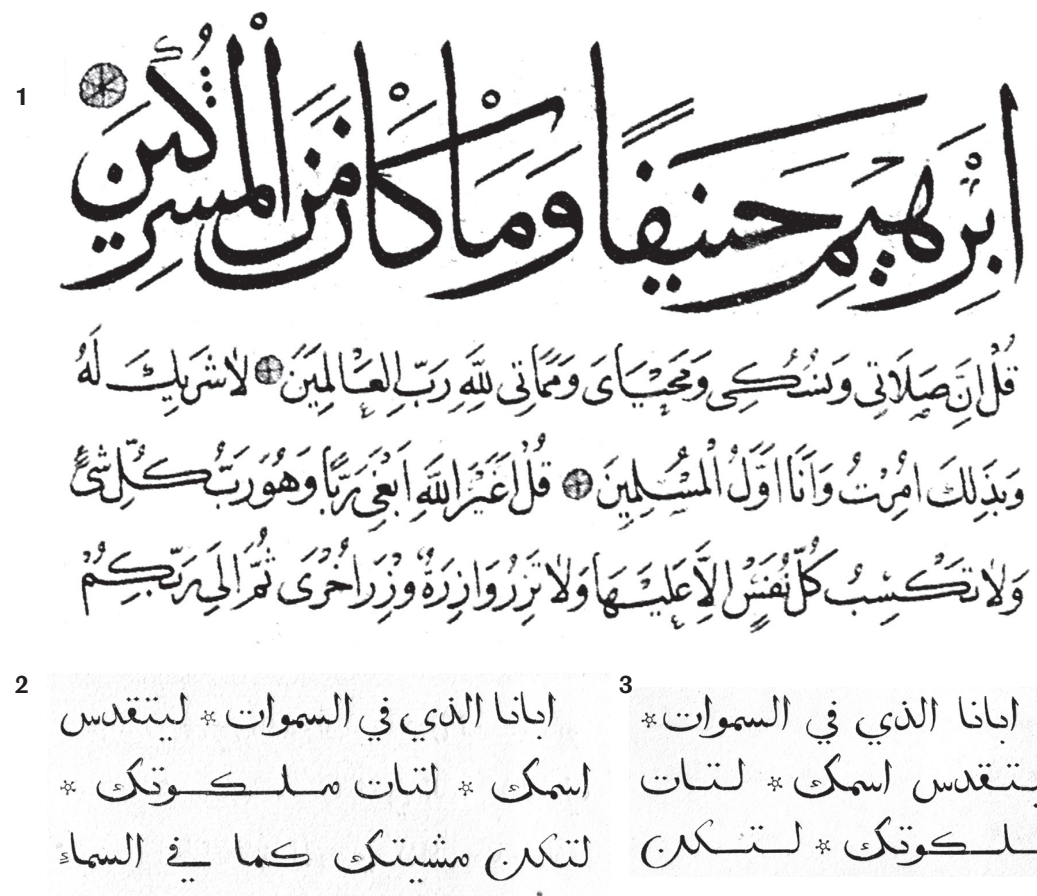 1
اِبْرٰهيمِ حَنيفًا وَمَا كَانَ مِنَ الْمُشْرِكينَ
قُلْ اِنَّ صَلَاتي وَنُسُكي وَمَحْيَايَ وَمَمَاتي لِلّٰهِ رَبِّ الْعَالَمينَ لَا شَريكَ لَهُ
وَبِذٰلِكَ اُمِرْتُ وَاَنَا اَوَّلُ الْمُسْلِمينَ قُلْ اَغَيْرَ اللّٰهِ اَبْغي رَبًّا وَهُوَ رَبُّ كُلِّ شَيْءٍ
وَلَا تَكْسِبُ كُلُّ نَفْسٍ اِلَّا عَلَيْهَا وَلَا تَزِرُ وَازِرَةٌ وِزْرَ اُخْرٰى ثُمَّ اِلٰى رَبِّكُمْ
2
ابانا الذي في السموات * ليتقدس
اسمك * لتات ملـكـوتك *
لتكن مشيتك كما في السماء
3
ابانا الذي في السموات *
ـيتـقدس اسمك * لـتـات
ـلـكـوتك * لـتـكن